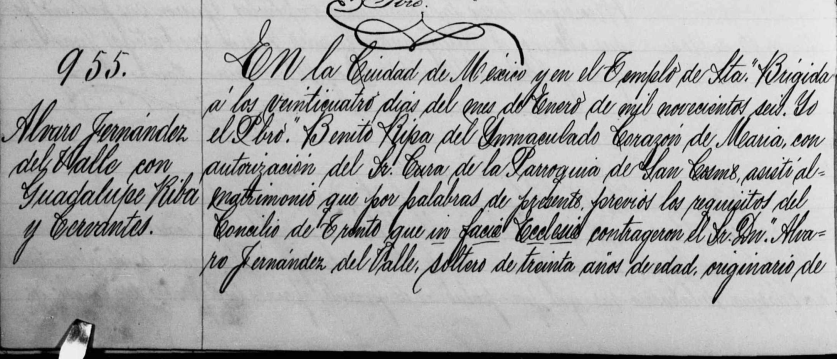 Pbro.
955.
Alvaro Fernández
del Valle con
Guadalupe Riba
y Cervantes.
EN la Ciudad de México y en el Templo de Sta. Brigida
á los veinticuatro dias del mes de Enero de mil novecientos seis. Yo
el Pbro. Benito Ripa del Inmaculado Corazon de Maria, con
autorización del Sr. Cura de la Parroquia de San Cosme, asisti al=
matrimonio que por palabras de presente, previos los requisitos del
Concilio de Trento que in facie Ecclesie contrageron el Sr. Dn. Alva=
ro Fernández del Valle, soltero de treinta años de edad, originario de